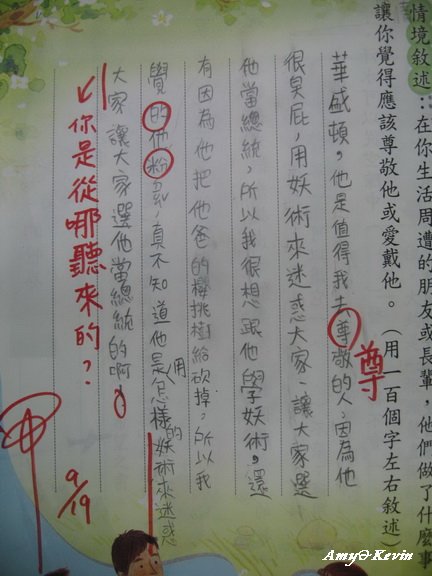 情境敘述：在你生活周遭的朋友或長輩，他們做了什麼事
讓你覺得應該尊敬他或愛戴他。（用一百個字左右敘述）
華盛頓，他是值得我去尊敬的人，因為他
尊
很臭屁，用妖術來迷惑大家、讓大家選
他當總統，所以我很想跟他學妖術，還
有因為他把他爸的櫻桃樹給砍掉，所以我
覺的他粉忍，真不知道他是用怎樣的妖術來迷惑
大家讓大家選他當總統的啊！
你是從哪聽來的？
9/19
Amy&Kevin